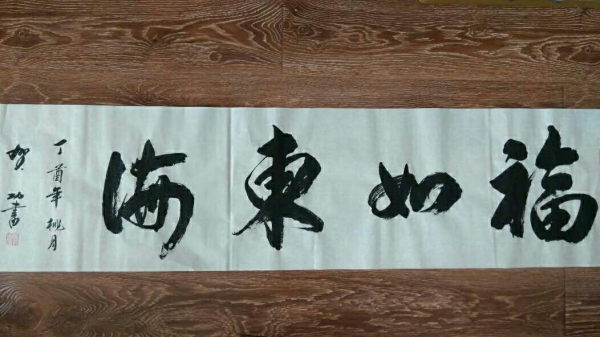 福如東海
丁酉年桃月
賀 書